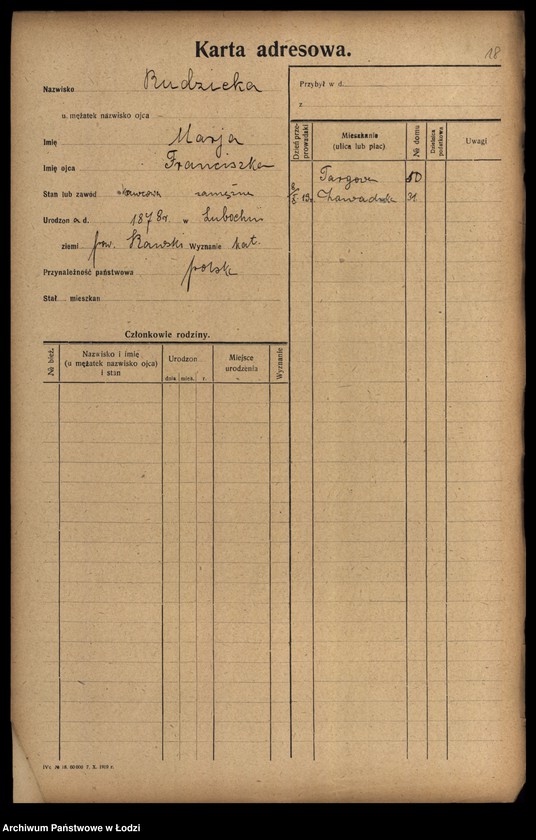 18
Karta adresowa.
Nazwisko Rudzicka
u mężatek nazwisko ojca
Imię Marja
Imię ojca Franciszka
Stan lub zawód zamężna
Urodzon a d. 1878 r. w Lubochni
ziemi pow. Rawski Wyznanie kat.
Przynależność państwowa polsk
Stał mieszkan
Członkowie rodziny.
№ bież. Nazwisko i imię (u mężatek nazwisko ojca) i stan Urodzon dnia mies. r. Miejsce urodzenia Wyznanie
Przybył w d.
z
Dzień przeprowadzki Mieszkanie (ulica lub plac) № domu Dzielnica podatkowa Uwagi
Targowa 50
Zawadzka 31
IVt. № 18. 60 000 7. X. 1919 r.
Archiwum Państwowe w Łodzi